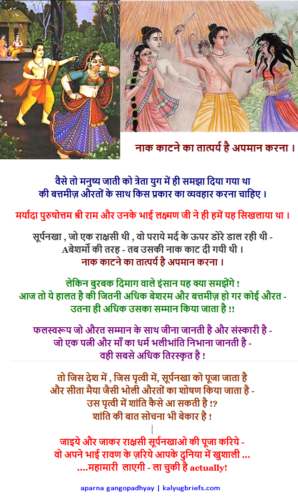 नाक काटने का तात्पर्य है अपमान करना ।
वैसे तो मनुष्य जाती को त्रेता युग में ही समझा दिया गया था
की बत्तमीज़ औरतों के साथ किस प्रकार का व्यवहार करना चाहिए ।
मर्यादा पुरुषोत्तम श्री राम और उनके भाई लक्ष्मण जी ने ही हमें यह सिखलाया था ।
सूर्पनखा , जो एक राक्षसी थी , वो पराये मर्द के ऊपर डोरे डाल रही थी -
Aबेशर्मो की तरह - तब उसकी नाक काट दी गयी थी ।
नाक काटने का तात्पर्य है अपमान करना ।
लेकिन बुरबक दिमाग वाले इंसान यह क्या समझेंगे !
आज तो ये हालत है की जितनी अधिक बेशरम और बत्तमीज़ हो गर कोई औरत -
उतना ही अधिक उसका सम्मान किया जाता है !!
फलस्वरूप जो औरत सम्मान के साथ जीना जानती है और संस्कारी है -
जो एक पत्नी और माँ का धर्म भलीभांति निभाना जानती है -
वही सबसे अधिक तिरस्कृत है !
तो जिस देश में , जिस पृथ्वी में, सूर्पनखा को पूजा जाता है
और सीता मैया जैसी भोली औरतों का शोषण किया जाता है -
उस पृथ्वी में शांति कैसे आ सकती है !?
शांति की बात सोचना भी बेकार है !
जाइये और जाकर राक्षसी सूर्पनखाओ की पूजा करिये -
वो अपने भाई रावण के ज़रिये आपके दुनिया में खुशाली ...
....महामारी लाएगी - ला चुकी है actually!
aparna gangopadhyay | kalyugbriefs.com